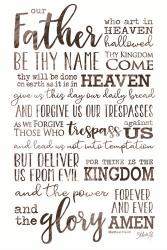 our
Father who art in
HEAVEN
hallowed
BE THY NAME Thy KINGDOM
COME
thy will be done
on earth as it is in HEAVEN
give us this day our daily bread
AND FORGIVE US OUR TRESPASSES
AS WE FORGIVE
THOSE WHO trespass against
US
and lead us not into temptation
BUT DELIVER
US FROM EVIL FOR THINE IS THE
KINGDOM
and the power
and the
glory FOREVER
AND EVER
AMEN